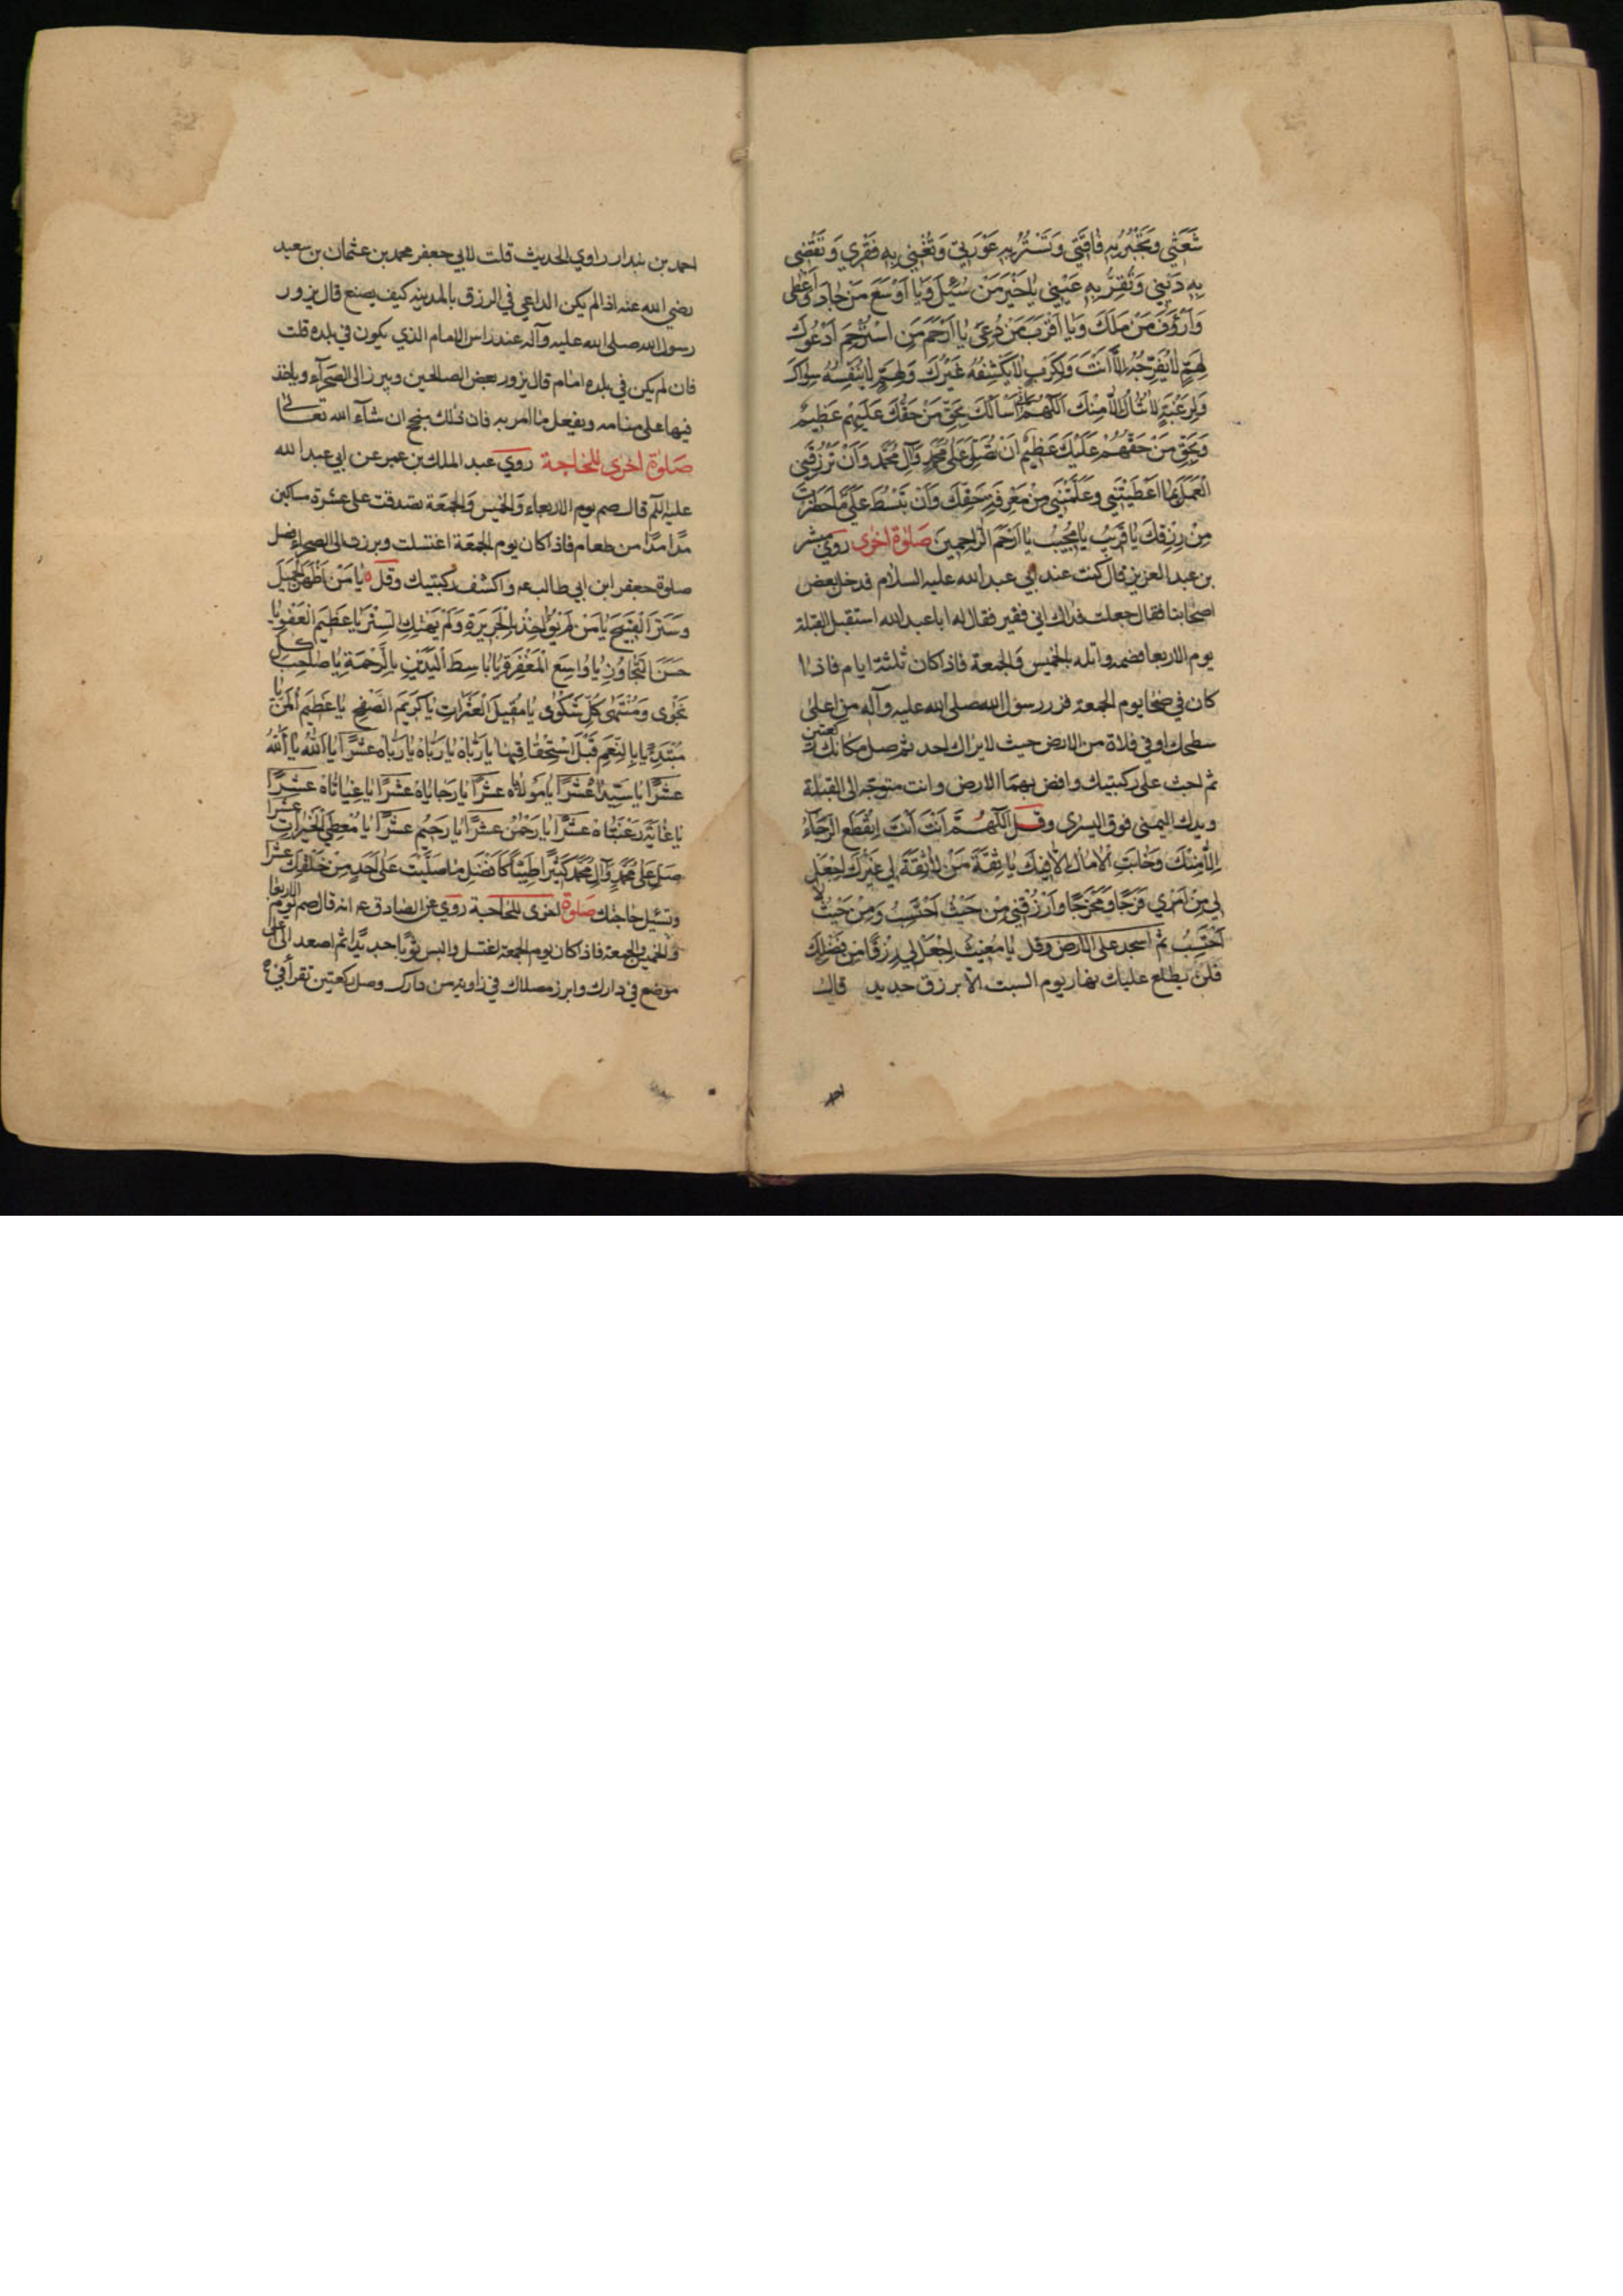 شَعَثِي وَتَجْبُرُ بِهِ فَاقَتِي وَتَسْتُرُ بِهِ عَوْرَتِي وَتُغْنِي بِهِ فَقْرِي وَتَقْضِي
بِهِ دَيْنِي وَتُقِرُّ بِهِ عَيْنِي يَا خَيْرَ مَنْ سُئِلَ وَيَا أَوْسَعَ مَنْ جَادَ وَأَعْطَى
وَأَرْؤَفَ مَنْ مَلَكَ وَيَا أَقْرَبَ مَنْ دُعِيَ يَا أَرْحَمَ مَنِ اسْتُرْحِمَ أَدْعُوكَ
لِهَمٍّ لَا يُفَرِّجُهُ إِلَّا أَنْتَ وَلِكَرْبٍ لَا يَكْشِفُهُ غَيْرُكَ وَلِهَمٍّ لَا يُنَفِّسُهُ سِوَاكَ
وَلِرَغْبَةٍ لَا تُنَالُ إِلَّا مِنْكَ اَللّهُمَّ إِنِّي أَسْأَلُكَ بِحَقِّ مَنْ حَقُّكَ عَلَيْهِمْ عَظِيمٌ
وَبِحَقِّ مَنْ حَقُّهُمْ عَلَيْكَ عَظِيمٌ أَنْ تُصَلِّيَ عَلَى مُحَمَّدٍ وَآلِ مُحَمَّدٍ وَأَنْ تَرْزُقَنِي
الْعَمَلَ بِمَا أَعْطَيْتَنِي وَعَلَّمْتَنِي مِنْ مَعْرِفَةِ حَقِّكَ وَأَنْ تَبْسُطَ عَلَيَّ مَا حَظَرْتَ
مِنْ رِزْقِكَ يَا قَرِيبُ يَا مُجِيبُ يَا أَرْحَمَ الرَّاحِمِينَ صَلٰوةٌ اُخْرٰى رَوٰي مبشر
بن عبد العزيز قال كنت عند ابي عبد الله عليه السلام فدخل بعض
اصحابنا فقال جعلت فداك اني فقير فقال له ابا عبد الله استقبل القبلة
يوم الاربعا فصمه واتله بالخميس والجمعة فاذا كان ثلثة ايام فاذا
كان في ضحا يوم الجمعة فزر رسول الله صلى الله عليه وآله من اعلى
سطحك او في فلاة من الارض حيث لا يراك احد ثم صل مكانك ركعتين
ثم اجث على ركبتيك وافض بهما الارض وانت متوجه الى القبلة
ويدك اليمنى فوق اليسرى وقل اَللّهُمَّ أَنْتَ أَنْتَ اِنْقَطَعَ الرَّجَآءُ
اِلَّا مِنْكَ وَخَابَتِ الْآمَالُ اِلَّا فِيكَ يَا ثِقَةَ مَنْ لَا ثِقَةَ لَهُ لَا ثِقَةَ لِي غَيْرُكَ اجْعَلْ
لِي مِنْ أَمْرِي فَرَجًا وَمَخْرَجًا وَارْزُقْنِي مِنْ حَيْثُ أَحْتَسِبُ وَمِنْ حَيْثُ لَا
أَحْتَسِبُ ثم اسجد على الارض وقل يَا مُغِيثُ اجْعَلْ لِي رِزْقًا مِنْ فَضْلِكَ
فلن يطلع عليك نهار يوم السبت الا برزق جديد قال
احمد
احمد بن بندار راوي الحديث قلت لابي جعفر محمد بن عثمان بن سعيد
رضي الله عنه اذا لم يكن الداعي في الرزق بالمدينه كيف يصنع قال يزور
رسول الله صلى الله عليه وآله عند راس الامام الذي يكون في بلده قلت
فان لم يكن في بلده امام قال يزور بعض الصالحين ويبرز الى الصحرآء وياخذ
فيها على ميامنه ويفعل ما امر به فان ذلك ينجح ان شآء الله تعالى
صلوة اخرى للحاجة روي عبد الملك بن عمر عن ابي عبد الله
عليه السلام قال صم يوم الاربعاء والخميس والجمعة تصدقت على عشرة مساكين
مدًا مدًا من طعام فاذا كان يوم الجمعة اغتسلت وبرزت الى الصحراء فصل
صلوة جعفر ابن ابي طالب عه واكشف ركبتيك وقل يَا مَنْ أَظْهَرَ الْجَمِيلَ
وَسَتَرَ الْقَبِيحَ يَا مَنْ لَمْ يُؤَاخِذْ بِالْجَرِيرَةِ وَلَمْ يَهْتِكِ السِّتْرَ يَا عَظِيمَ الْعَفْوِ يَا
حَسَنَ التَّجَاوُزِ يَا وَاسِعَ الْمَغْفِرَةِ يَا بَاسِطَ الْيَدَيْنِ بِالرَّحْمَةِ يَا صَاحِبَ كُلِّ
نَجْوٰى وَمُنْتَهٰى كُلِّ شَكْوٰى يَا مُقِيلَ الْعَثَرَاتِ يَا كَرِيمَ الصَّفْحِ يَا عَظِيمَ الْمَنِّ يَا
مُبْتَدِئًا بِالنِّعَمِ قَبْلَ اسْتِحْقَاقِهَا يَا رَبَّاهُ يَا رَبَّاهُ يَا رَبَّاهُ عَشْرًا يَا اَللّهُ يَا اَللّهُ
عَشْرًا يَا سَيِّدَاهُ عَشْرًا يَا مَوْلَاهُ عَشْرًا يَا رَجَايَاهُ عَشْرًا يَا غِيَاثَاهُ عَشْرًا
يَا غَايَةَ رَغْبَتَاهُ عَشْرًا يَا رَحْمٰنُ عَشْرًا يَا رَحِيمُ عَشْرًا يَا مُعْطِيَ الْخَيْرَاتِ عشرا
صَلِّ عَلَى مُحَمَّدٍ وَآلِ مُحَمَّدٍ كَثِيرًا طَيِّبًا كَأَفْضَلِ مَا صَلَّيْتَ عَلَى أَحَدٍ مِنْ خَلْقِكَ عشرا
وتسئل حاجتك صلوة اخرى للحاجة روي عن الصادق عه انه قال صم يوم الاربعا
والخميس والجمعة فاذا كان يوم الجمعة اغتسل والبس ثوبًا جديدًا ثم اصعد الى اعلى
موضع في دارك وابرز مصلاك في زاوية من دارك وصل ركعتين تقرأ في